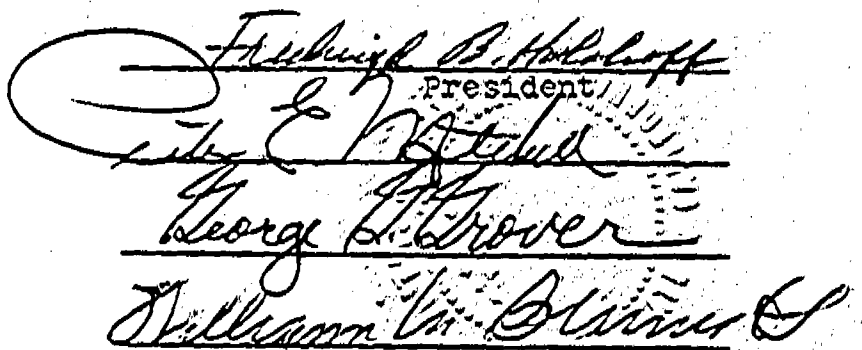 Fredrick B. Holoboff
President
Peter E Mitchell
George G. Grover
William M.